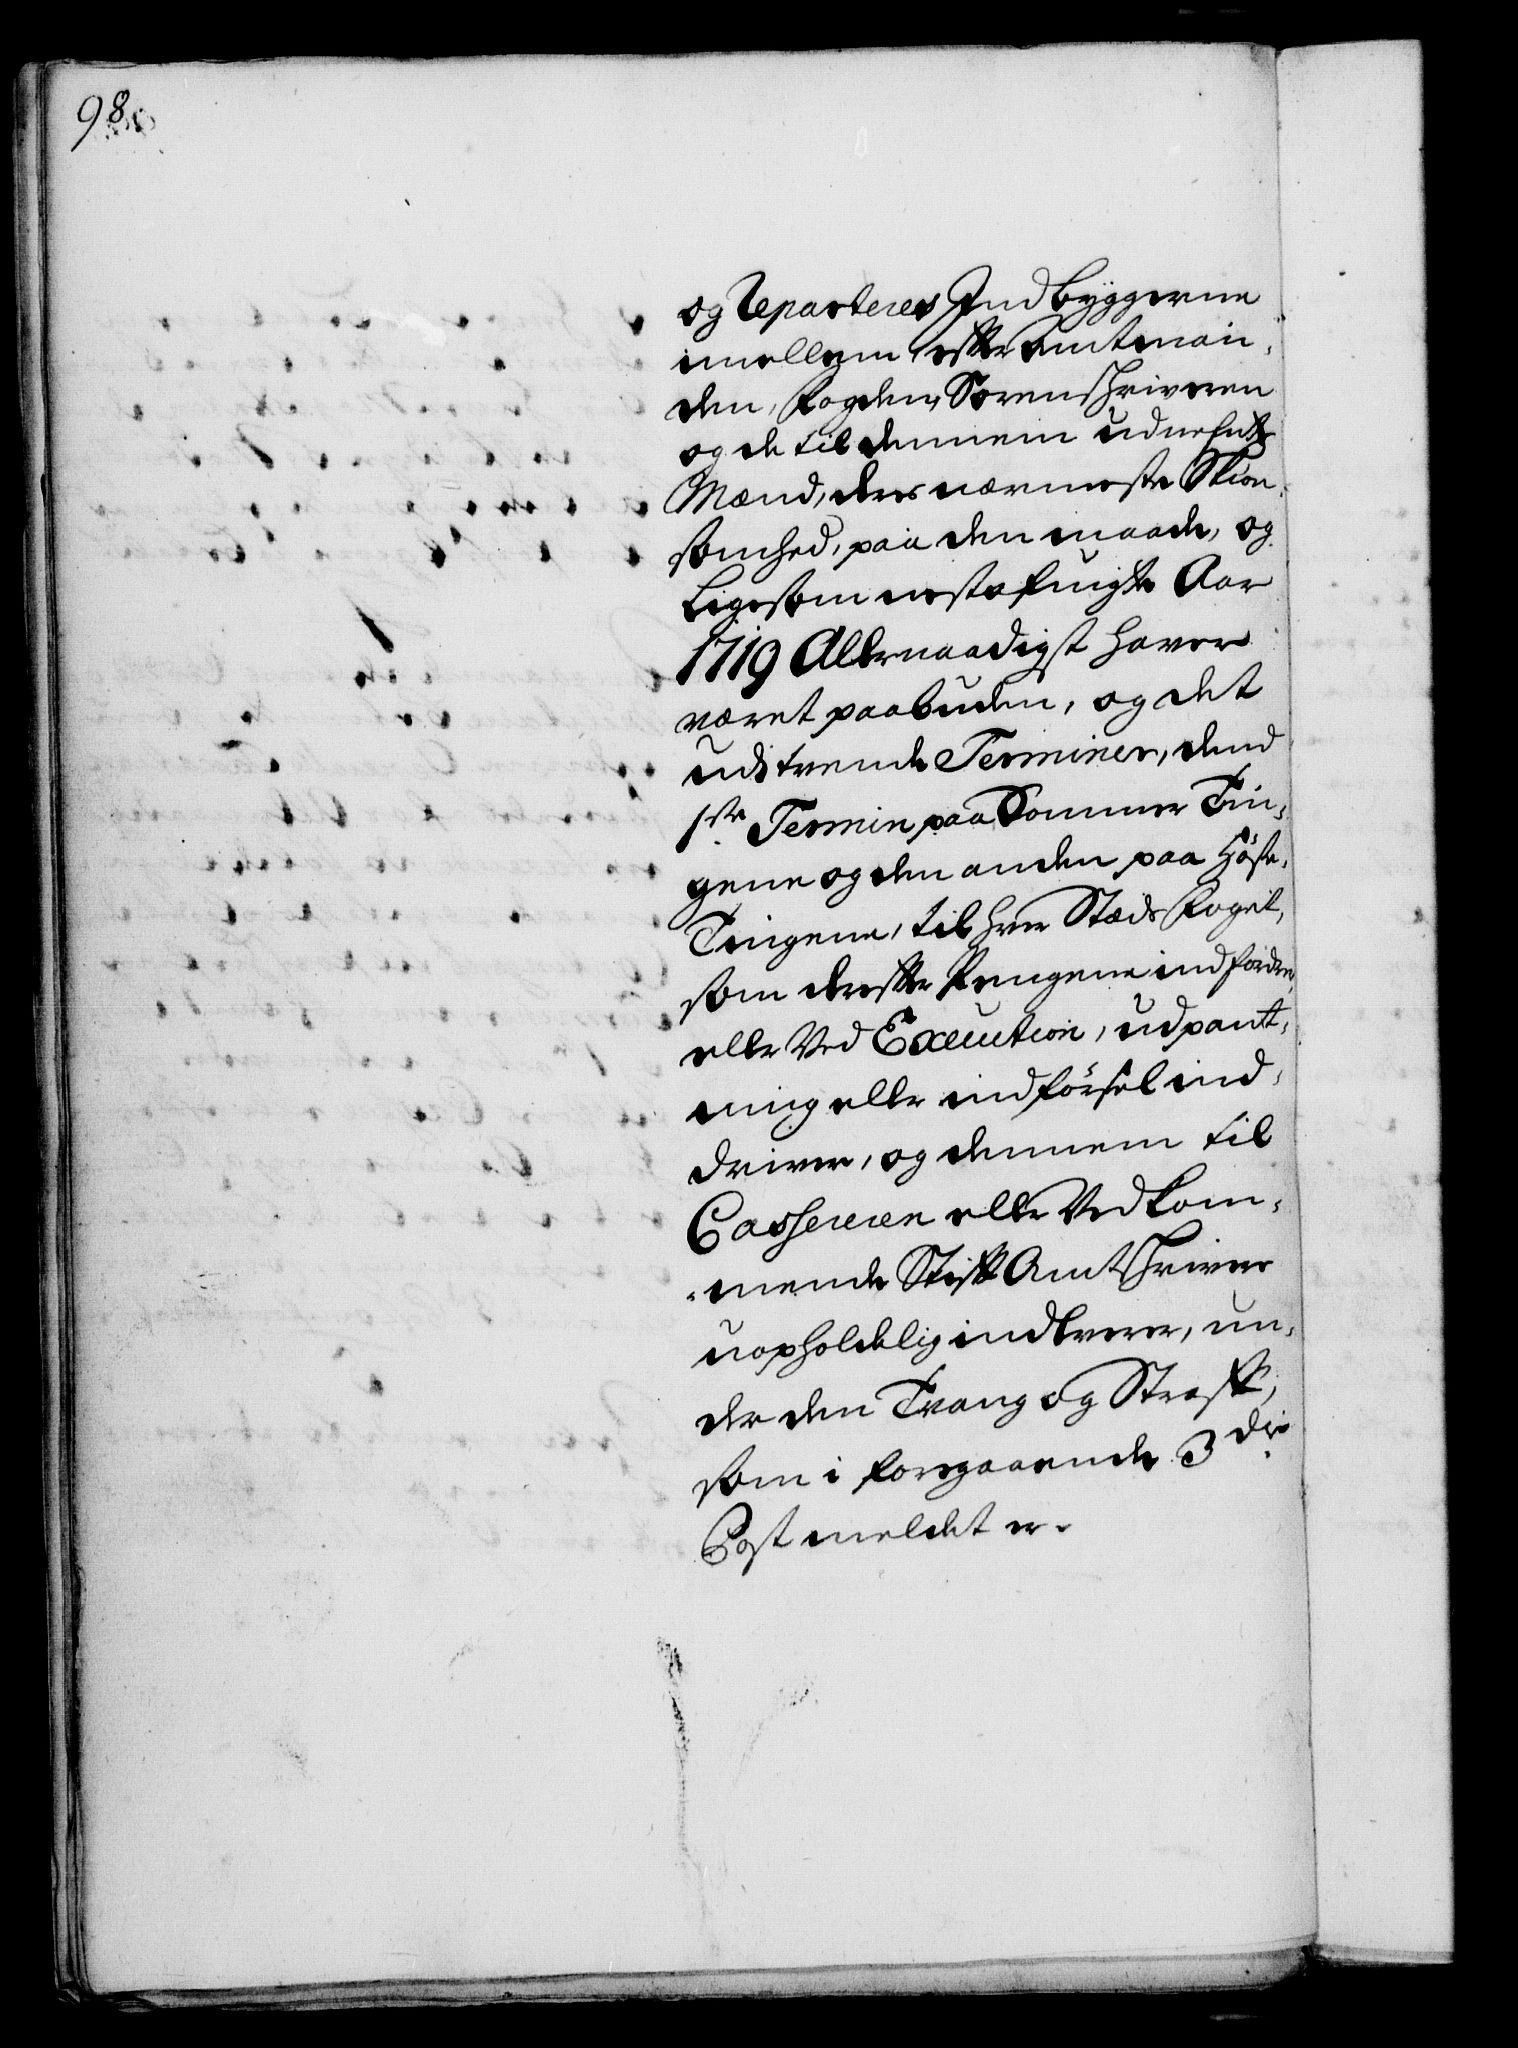 98
og Reparteres Indbyggerne
imellem, efter Amtman,
den, Fogden, Sorenskriveren
og de til dennem udnefnte
Mænd, deres nærmeste Skiøn,
somhed, paa den maade, og
ligesom nestafvigte Aar
1719 Allernaadigst haver
været paabuden, og det
udi tvende Terminer, dend
1ste Termin paa Sommer Tin,
gene og den anden paa Höste,
Tingene, til hver Stæds Foget,
som derefter Pengene indfordrer,
eller Ved Execution, udpant,
ning eller indförsel ind,
driver, og dennem til
Casereren eller Vedkom,
mende Stift Amtskriver
uopholdelig indleverer, un,
der den Tvang og Straff,
som i foregaaende 3die
Post meldet er.